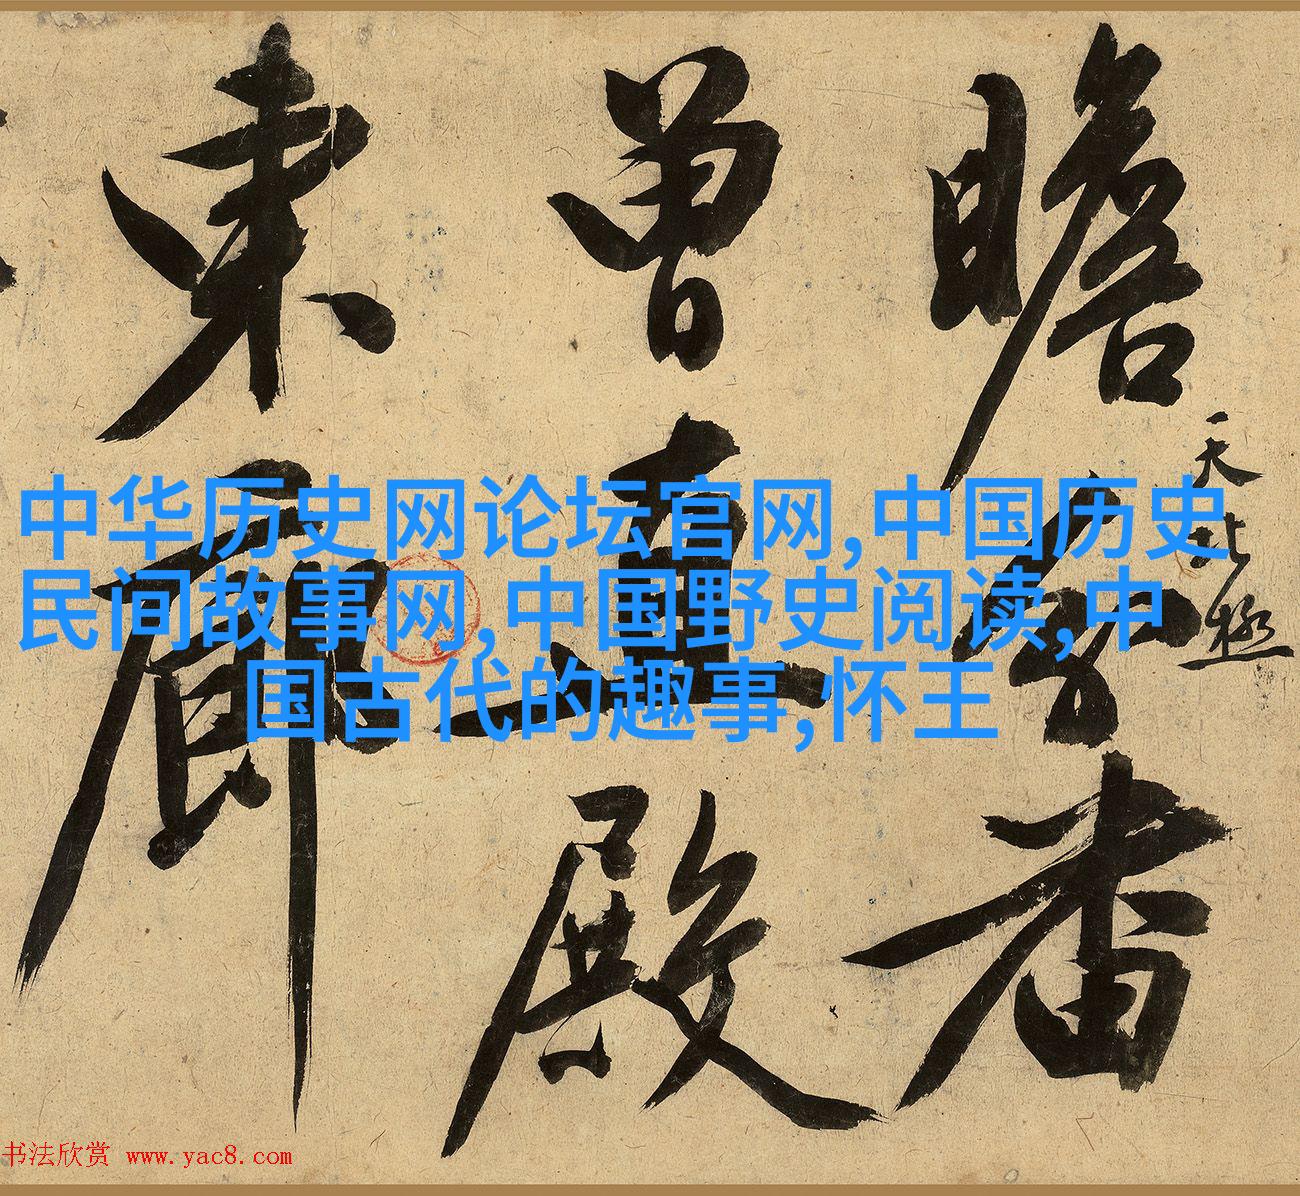 中华历史网论坛官网,中国历史
民间故事网,中国野史阅读,中
国古代的趣事,怀王
瞻
天北極
曾直殿
東廊
书法欣赏 www.yac8.com